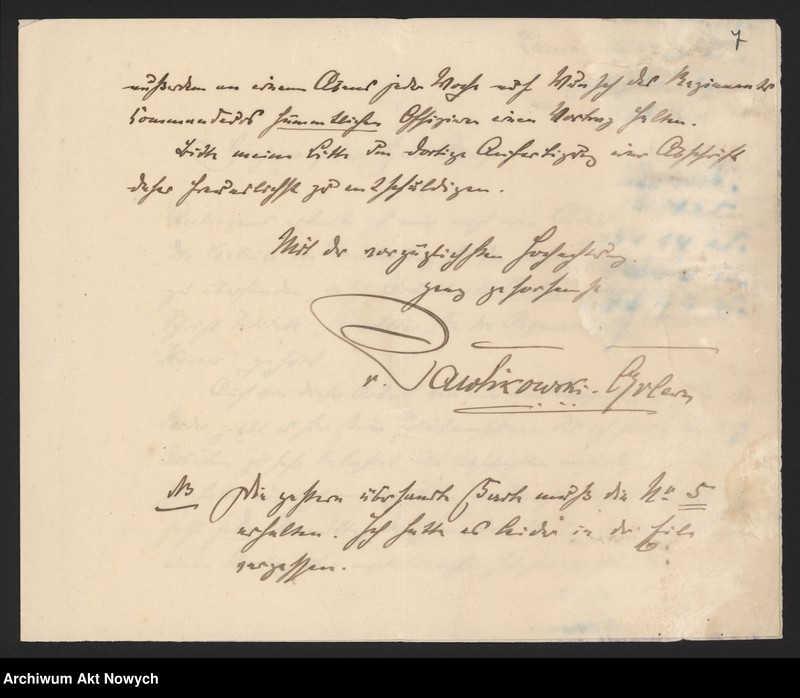 7
außerdem an einem Abend jeder Woche auf Wunsch des Regiments
Commandeurs sämmtlichen Offizieren einen Vortrag halten.
Bitte meine Bitte um dortige Anfertigung einer Abschrift
daher freundlichst zu entschuldigen.
Mit der vorzüglichsten Hochachtung
ganz gehorsamst
v. Pawlikowski-Cholewa
NB Die gestern übersandte Karte muß die No 5
erhalten. Ich hatte es leider in der Eile
vergessen.
Archiwum Akt Nowych